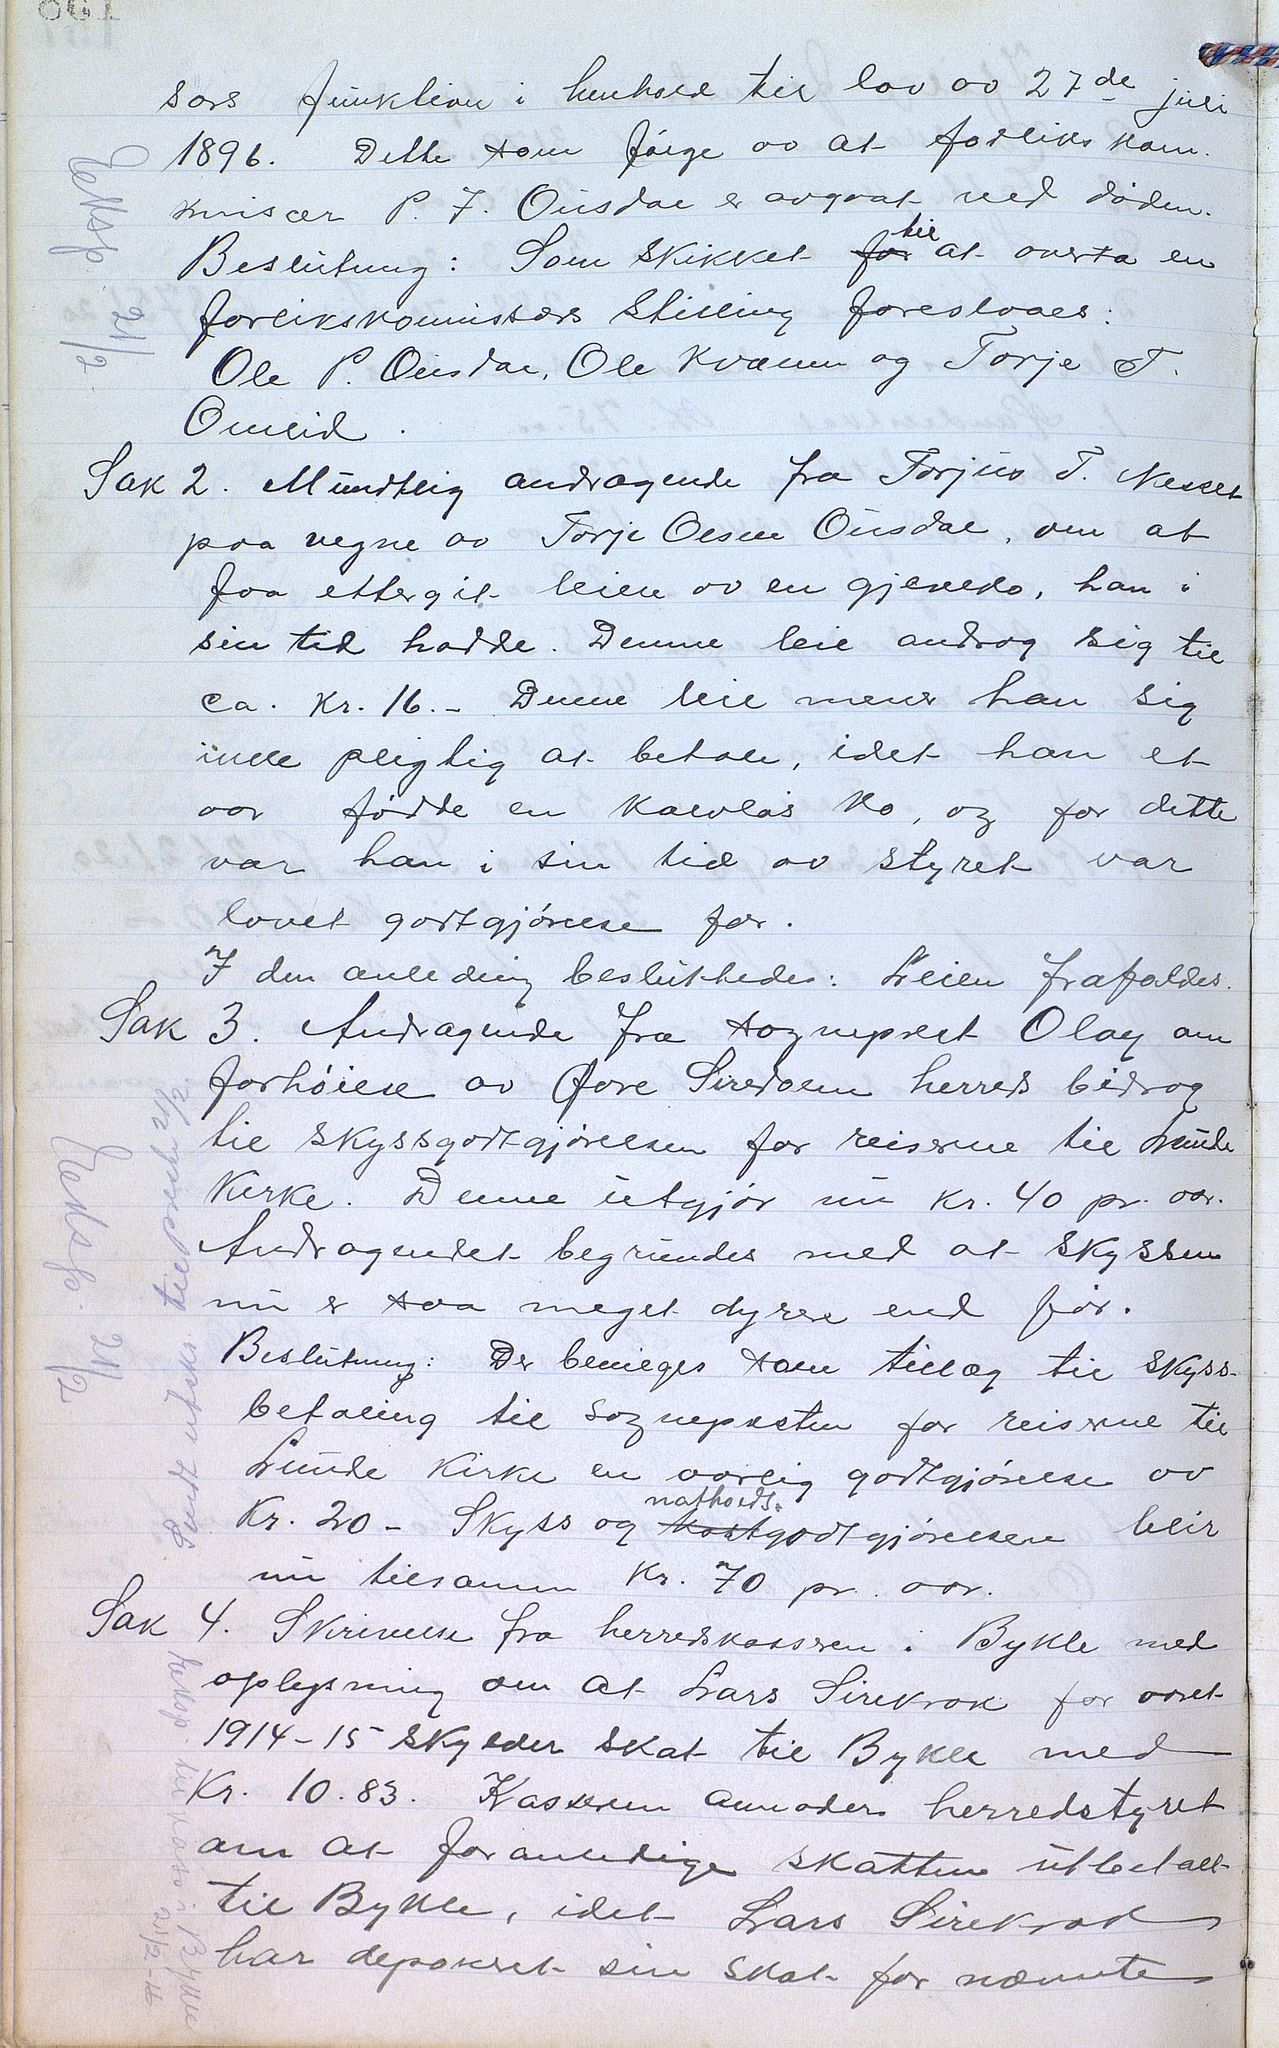 sørs funktion i henhold til lov av 27de juli
1896. Dette som følge av at forlikskom-
misær P. T. Ousdal er avgaat ved døden.
Beslutning: Som skikket for til at overta en
forlikskomissærs stilling foreslaaes:
Ole P. Ousdal, Ole Kvæven og Torje T.
Omlid.
Sak 2. Mundtlig andragende fra Torjus T. Nesset
paa vegne av Torje Olsen Ousdal, om at
faa ettergit leien av en gjeldko, han i
sin tid hadde. Denne leie androg sig til
ca. kr. 16.- Denne leie mener han sig
ikke pligtig at betale, idet han et
aar fødde en kalvløs ko, og for dette
var han i sin tid av styret var
lovet godtgjørelse for.
I den anledning besluttedes: Leien frafaldes.
Sak 3. Andragende fra sogneprest Olay om
forhøielse av Øvre Siredalen herreds bidrag
til skyssgodtgjørelsen for reiserne til Lunde
Kirke. Denne utgjør nu kr. 40 pr. aar.
Andragendet begrundes med at skyssen
nu er saa meget dyrere end før.
Beslutning: Der bevilges som tillæg til skyss-
betaling til sognepresten for reiserne til
Lunde Kirke en aarlig godtgjørelse av
Kr. 20 - Skyss og kost natholds. godtgjørelsen blir
nu tilsamen kr. 70 pr. aar.
Sak 4. Skrivelse fra herredskasseren i Bykle med
oplysning om at Lars Sirekrok for aaret
1914-15 skylder skat til Bykle med
Kr. 10.83. Kasseren anmoder herredstyret
om at foranledige skatten utbetalt
til Bykle, idet Lars Sirekrok
har deponeret sin skat for nævnte
Sendt utskr. til presten 2/12
til kass. i Bykle
21/2-16